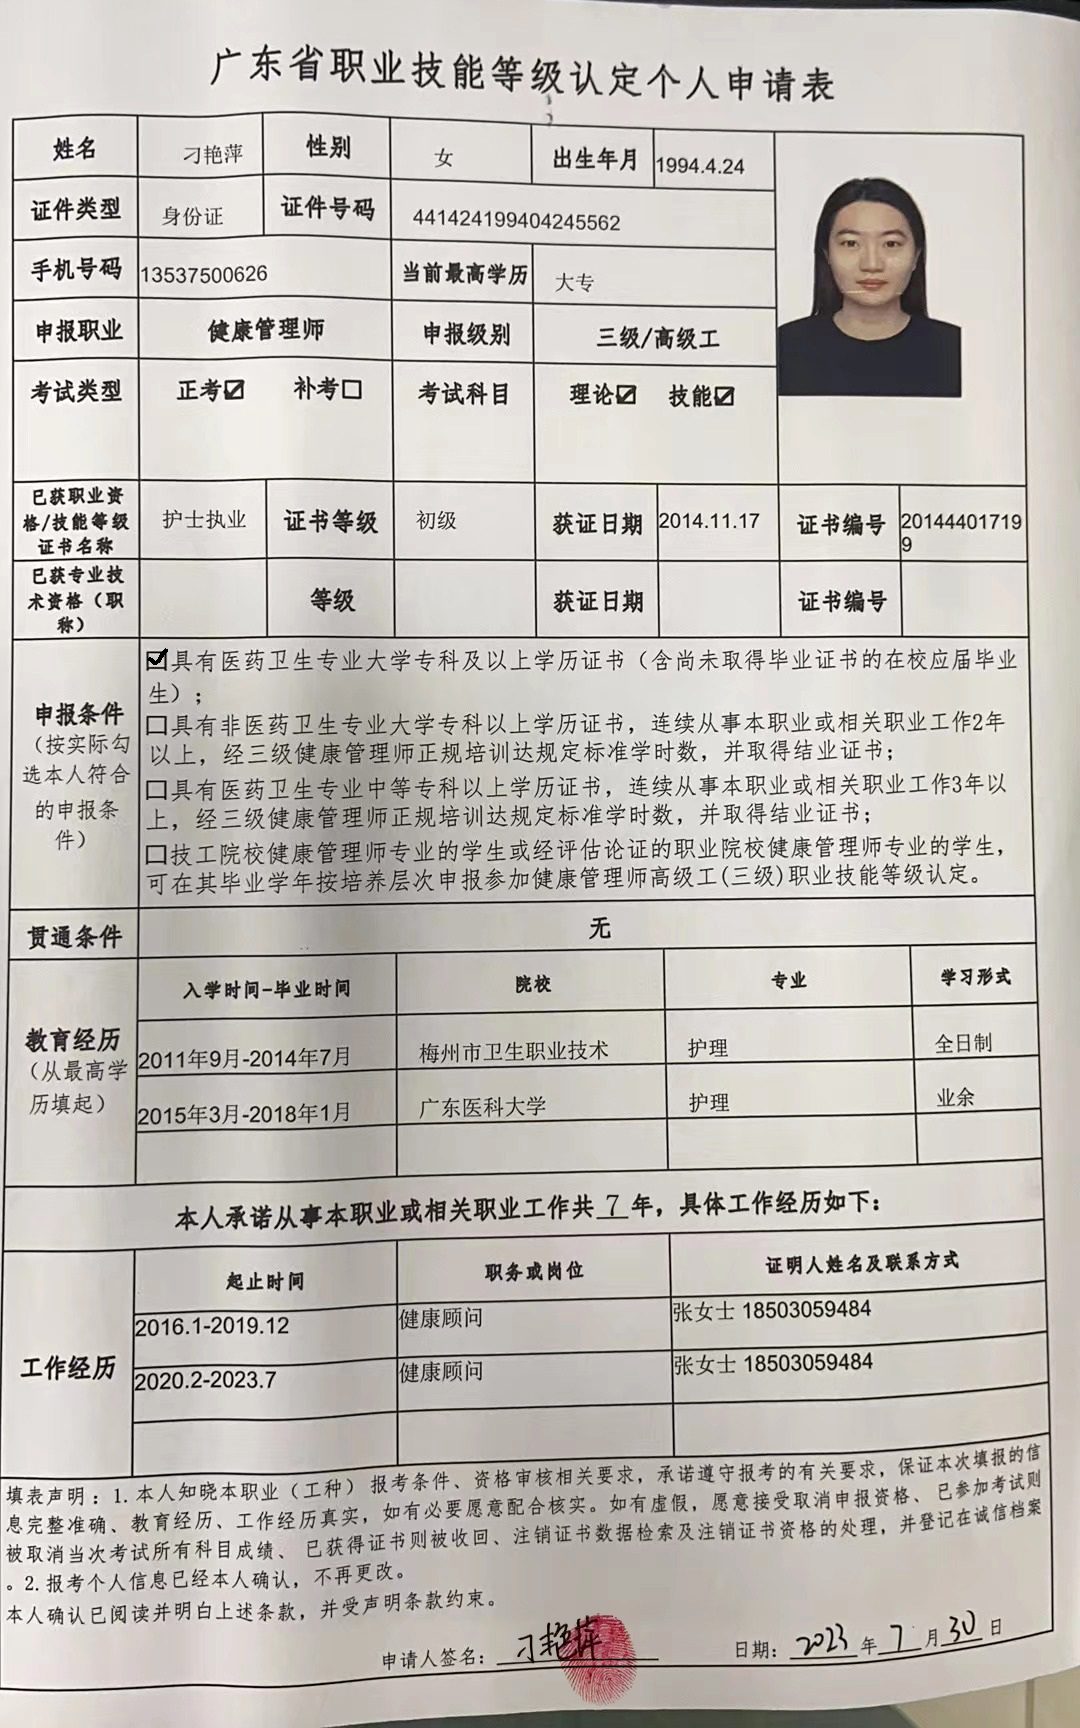 广东省职业技能等级认定个人申请表
姓名 刁艳萍 性别 女 出生年月 1994.4.24
证件类型 身份证 证件号码 441424199404245562
手机号码 13537500626 当前最高学历 大专
申报职业 健康管理师 申报级别 三级/高级工
考试类型 正考☑ 补考☐ 考试科目 理论☑ 技能☑
已获职业资
格/技能等级
证书名称
护士执业 证书等级 初级 获证日期 2014.11.17 证书编号 20144401719
9
已获专业技
术资格（职
称）
等级 获证日期 证书编号
申报条件
（按实际勾
选本人符合
的申报条
件）
☑具有医药卫生专业大学专科及以上学历证书（含尚未取得毕业证书的在校应届毕业
生）；
☐具有非医药卫生专业大学专科以上学历证书，连续从事本职业或相关职业工作2年
以上，经三级健康管理师正规培训达规定标准学时数，并取得结业证书；
☐具有医药卫生专业中等专科以上学历证书，连续从事本职业或相关职业工作3年以
上，经三级健康管理师正规培训达规定标准学时数，并取得结业证书；
☐技工院校健康管理师专业的学生或经评估论证的职业院校健康管理师专业的学生，
可在其毕业学年按培养层次申报参加健康管理师高级工(三级)职业技能等级认定。
贯通条件 无
教育经历
（从最高学
历填起）
入学时间-毕业时间 院校 专业 学习形式
2011年9月-2014年7月 梅州市卫生职业技术 护理 全日制
2015年3月-2018年1月 广东医科大学 护理 业余
本人承诺从事本职业或相关职业工作共7年，具体工作经历如下：
工作经历
起止时间 职务或岗位 证明人姓名及联系方式
2016.1-2019.12 健康顾问 张女士 18503059484
2020.2-2023.7 健康顾问 张女士 18503059484
填表声明：1.本人知晓本职业（工种）报考条件、资格审核相关要求，承诺遵守报考的有关要求，保证本次填报的信
息完整准确、教育经历、工作经历真实，如有必要愿意配合核实。如有虚假，愿意接受取消申报资格、已参加考试则
被取消当次考试所有科目成绩、已获得证书则被收回、注销证书数据检索及注销证书资格的处理，并登记在诚信档案
。2.报考个人信息已经本人确认，不再更改。
本人确认已阅读并明白上述条款，并受声明条款约束。
申请人签名：刁艳萍 日期：2023年7月30日